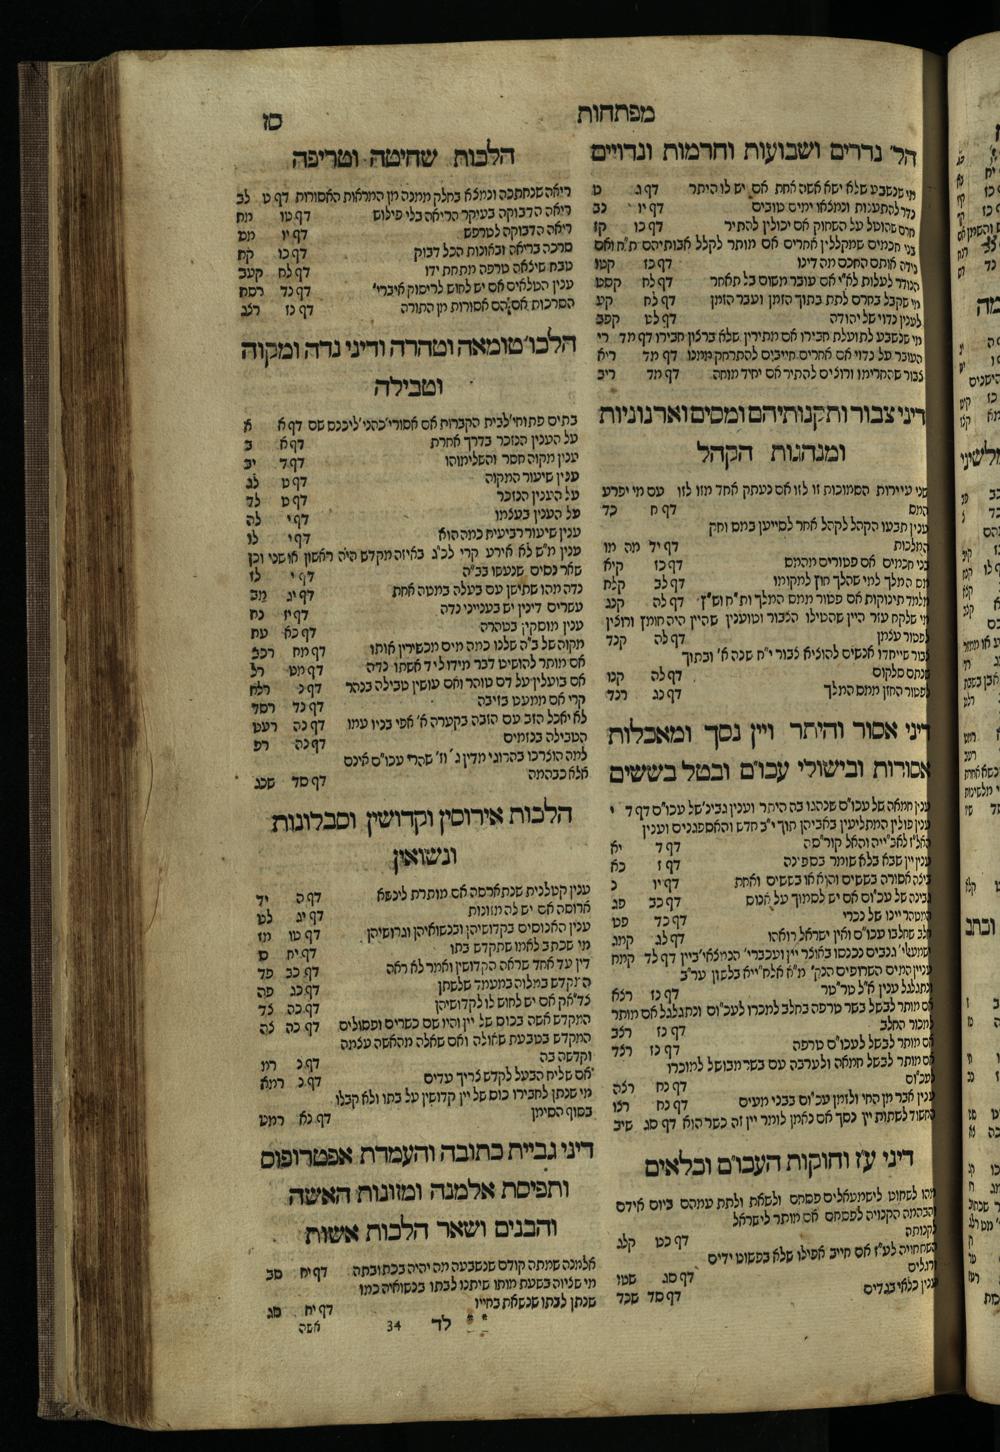 מפתחות
סז
הל׳ נדרים ושבועות וחרמות ונדויים
מי שנשבע שלא ישא אשה אחת אם יש לו היתר דף ג ט
נדר להתענות ונמצאו ימים טובים דף יו כב
חרם שהוטל על השחוק אם יכולין להתיר דף כו קז
בני חכמים שמקללין אחרים אם מותר לקלל אבותיהם ת״ח ואם
נידה אותם החכם מה דינו דף כז קטו
הנודר לעלות לא״י אם עובר משום בל תאחר דף לח קסט
מי שקבל בחרם לתת בתוך הזמן ועבר הזמן דף לח קע
לענין נדוי של יהודה דף לט קפב
מי שנשבע לתועלת חבירו אם מתירין שלא ברצון חבירו דף מד רי
העובר על נדוי אם אחרים חייבים להתרחק ממנו דף מד ריא
צבור שהחרימו ורוצים להתיר אם יחיד מוחה דף מד ריב
דיני צבור ותקנותיהם ומסים וארנוניות
ומנהגות הקהל
שני עיירות הסמוכות זו לזו אם נעתק אחד מזו לזו עם מי יפרע
המס דף ח כד
ענין תבעו הקהל לקהל אחר לסייען במס וחק
המלכות דף יד מה מו
בני חכמים אם פטורים מהמס דף כז קיא
מס המלך למי שהלך חוץ למקומו דף לב קלח
מלמד תינוקות אם פטור ממס המלך ות״ח וש״ץ דף לה קנג
מי שלקח עזר היין שהטילו הצבור וטוענין שהיין היה חומץ ורוצין
לפטור עצמן דף לה קנד
צבור שייחדו אנשים להוציא צבור י״ח שנה א׳ ובתוך
שנתם סלקום דף לה קנו
לפטור החזן ממס המלך דף נג רנד
דיני אסור והיתר ויין נסך ומאכלות
אסורות ובישולי עכו״ם ובטל בששים
ענין חמאה של עכו״ם שנהגו בה היתר וענין גבינ׳ של עכו״ם דף ד י
ענין פולין המתליעין באביהן תוך י״ב חדש והאספגנים וענין
דף ד יא
ענין יין שבא בלא שומר בספינה דף ז כא
ביצה אסורה בששים והיא או בששים ואחת דף יו נ
גבינה של עכו״ם אם יש לסמוך על חנוס דף כב פג
המטהר יינו של נכרי דף כד פט
חלב שחלבו עכו״ם ואין ישראל רואהו דף לג קמג
שמעלי׳ גנבים נכנסו באוצר יין ועכברי׳ הנמצאי׳ ביין דף לד קמח
נתגלגל ענין א״ל טר״טר דף נז רצא
אם מותר לבשל בשר טרפה בחלב למכרו לעכו״ם ונתגלגל אם מותר
למכור החלב דף נז רצב
אם מותר לבשל לעכו״ם טרפה דף נז רצד
אם מותר לבשל חמאה ולערבה עם בשר מבושל למוכרו
לעכו״ם דף נח רצה
ענין אבר מן החי ולזמן עכ״ום בבני מעים דף נח רצו
החשוד לשתות יין נסך אם נאמן לומר יין זה כשר הוא דף סג שיב
דיני ע״ז וחוקות העכו״ם וכלאים
מהו לשחוט לישמעאלים פסחם ולשאת ולתת עמהם ביום אידם
והבהמה הקנויה לפסחם אם מותר לישראל
לקנותה דף כט קלג
השתחויה לע״ז אם חייב אפילו שלא בפשוט ידים
ורגלים דף סג שטו
ענין כלאי בגדים דף סד שכד
הלכות שחיטה וטריפה
ריאה שנחתכה ונמצא בחלק ממנה מן המראות האסורות דף ט לב
ריאה הדבוקה בעיקר הריאה בלי פילוש דף טו מח
ריאה הדבוקה לטרפש דף יו מט
סרכה בריאה ובאונות הכל דבוק דף כו קח
טבח שיצאה טרפה מתחת ידו דף לח קעב
ענין הטלאים אם יש לחוש לריסוק איברי׳ דף נד רסח
הסרכות אם הם אסורות מן התורה דף נז רצג
הלכו׳ טומאה וטהרה ודיני נדה ומקוה
וטבילה
בתים פתוחי׳ לבית הקברות אם אסורי׳ כהני׳ ליכנס שם דף א א
על הענין הנזכר בדרך אחרת דף א ב
ענין מקוה חסר והשלימוהו דף ד יב
ענין שיעור המקוה דף ט לג
על הענין הנזכר דף ט לד
על הענין בעצמו דף י לה
ענין שיעור רביעית כמה הוא דף י לו
ענין מ״ש לא אירע קרי לכ״ג באיזה מקדש היה ראשון או שני וכן
שאר נסים שנעשו בב״ה דף י לז
נדה מהו שתישן עם בעלה במטה אחת דף יג מב
עשרים דינין יש בענייני נדה דף יז נח
ענין מוסקין בטהרה דף כא עח
מקוה של ב״ה שלנו כמה מים מכשירין אותו דף מח רכצ
אם מותר להושיט דבר מידו ליד אשתו נדה דף מט רל
אם בועלין על דם טוהר ואם עושין טבילה בנהר דף נ רלח
קרי אם ממעט בזיבה דף נד רסד
לא יאכל הזב עם הזבה בקערה א׳ אפי בניו עמו דף נה רעט
הטבילה בנזמים דף נה רפ
למה הוצרכו בהרוגי מדין ג׳ וז׳ שהרי עכו״ם אינם
אלא כבהמה דף סד שכג
הלכות אירוסין וקדושין וסבלונות
ונשואין
ענין קטלנית שנתארסה אם מותרת לינשא דף ה יד
ארוסה אם יש לה מזונות דף יג לט
ענין האנוסים בקדושיהן ובנשואיהן וגרושיהן דף טו מז
מי שכתב לאמו שתקדש בתו דף יח ס
דין עד אחד שראה הקדושין ואמר לא ראה דף כב פד
המקדש במלוה במעמד שלשתן דף כג פה
צד״אק אם יש לחוש לו לקדושיהן דף כה צד
המקדש אשה בכוס של יין והיו שם כשרים ופסולים דף כה צה
המקדש בטבעת שאולה ואם שאלה מהאשה עצמה
וקדשה בה דף נ רמ
אם שליח הבעל לקדש צריך עדים דף נ רמא
מי שנתן לחבירו כוס של יין קדושין על בתו ולא קבלו
בסוף הסימן דף נא רמט
דיני גביית כתובה והעמדת אפטרופוס
ותפיסת אלמנה ומזונות האשה
והבנים ושאר הלכות אשות
אלמנה שמתה קודם שנשבעה מה יהיה בכתובתה דף יח סב
מי שציוה בשעת מותו שיתנו לבתו בנשואיה כמו
שנתן לבתו שנשאת בחייו דף יח סג
לד 34 אשה